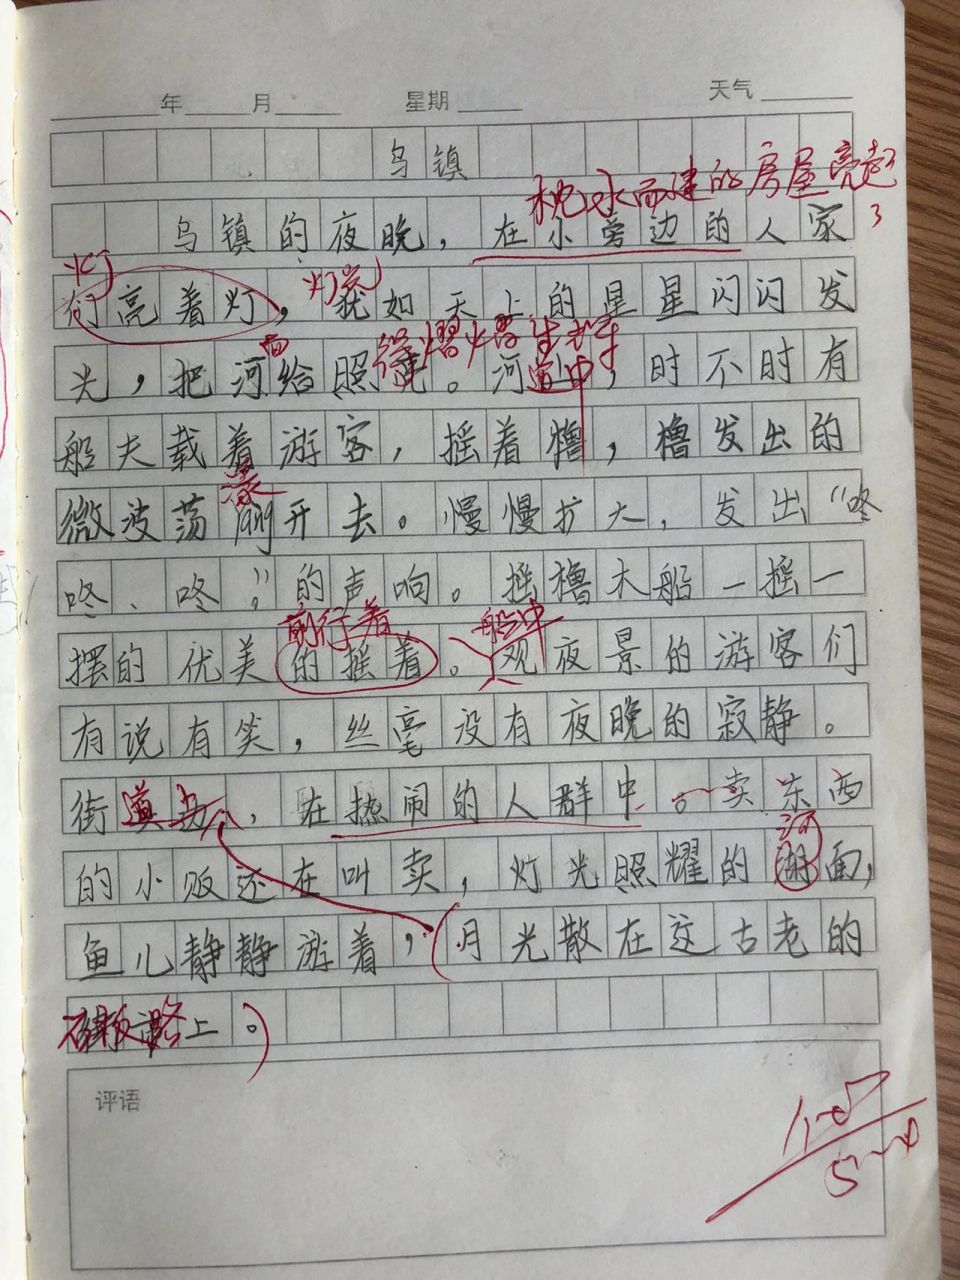 年 月 星期 天气
乌镇
枕水而建的房屋亮起了
乌镇的夜晚，在小旁边的人家
灯 灯光
们亮着灯，犹如天上的星星闪闪发
面 得熠熠生辉
光，把河给照亮。河道中，时不时有
船夫载着游客，摇着橹，橹发出的
微波荡漾开去。慢慢扩大，发出“咚
咚、咚”。的声响。摇橹木船一摇一
前行着 船中
摆的优美的摇着。观夜景的游客们
有说有笑，丝毫没有夜晚的寂静。
街道边，在热闹的人群中。卖东西
河
的小贩还在叫卖，灯光照耀的湖面，
鱼儿静静游着，月光散在这古老的
石板路上。
评语